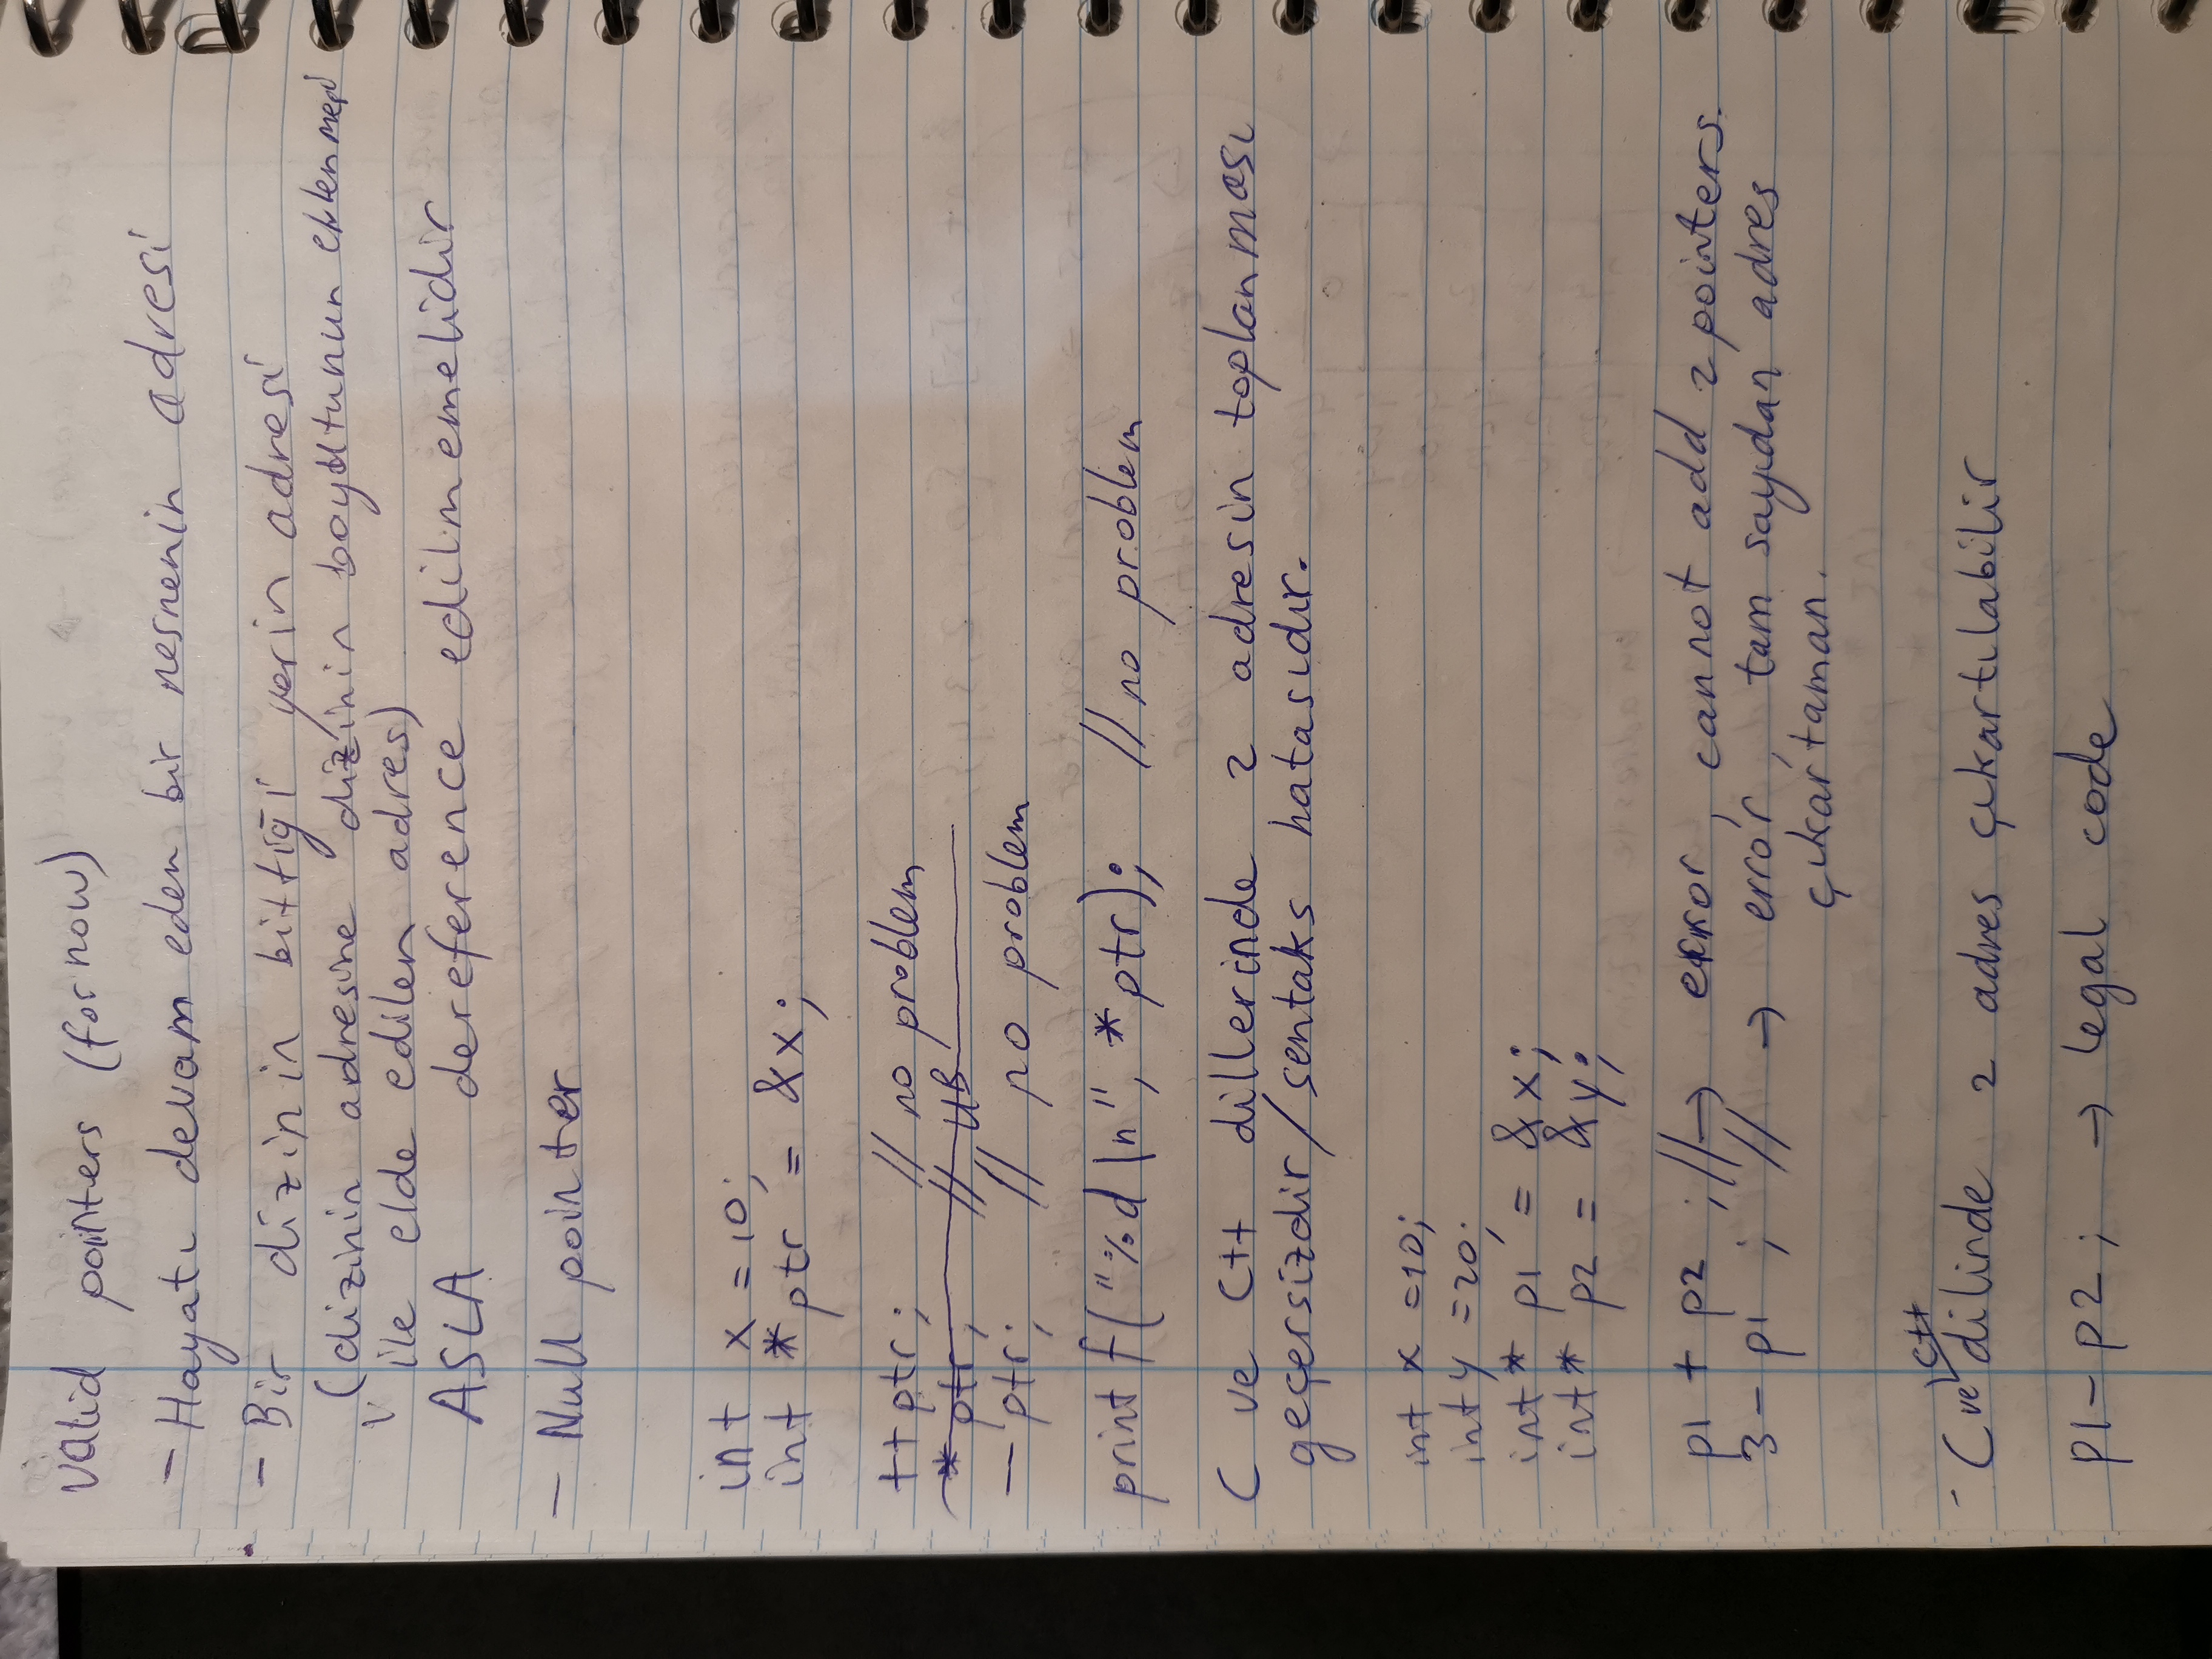 Valid pointers (for now)
- Hayatı devam eden bir nesnenin adresi
- Bir dizinin bittiği yerin adresi
(dizinin adresine dizinin boyutunun eklenmesi
ile elde edilen adres)
ASLA dereference edilmemelidir
- Null pointer
int x = 10;
int *ptr = &x;
++ptr; // no problem
*ptr; // UB
--ptr; // no problem
printf("%d\n", *ptr); // no problem
C ve C++ dillerinde 2 adresin toplanması
geçersizdir/sentaks hatasıdır.
int x =10;
int y =20;
int* p1 = &x;
int* p2 = &y;
p1 + p2 ; //→ error, cannot add 2 pointers.
3 - p1 ; // → error, tam sayıdan adres
çıkartaman.
- C ve C++ dilinde 2 adres çıkartılabilir
p1 - p2 ; → legal code